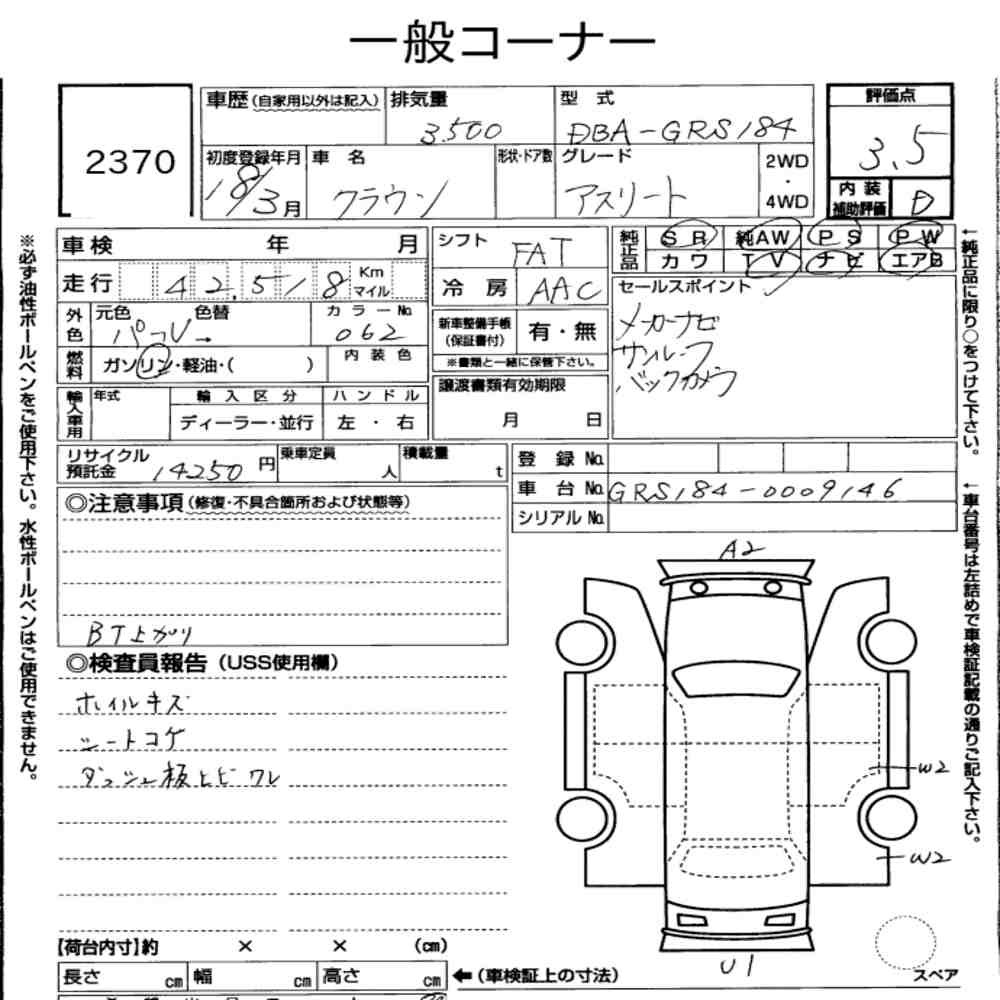 一般コーナー
2370
車歴(自家用以外は記入) 排気量 型式 評価点
3500 DBA-GRS184 3.5
初度登録年月 車名 形状・ドア数 グレード 2WD・4WD
18/3月 クラウン アスリート
内装補助評価 D
車検 年 月
シフト FAT
純正品 SR 純AW PS PW
カワ TV ナビ エアB
走行 42,518 Km マイル
冷房 AAC
セールスポイント
メーカーナビ
サンルーフ
バックカメラ
外色 元色 色替 カラーNo.
パール→ 062
新車整備手帳(保証書付) 有・無
※書類と一緒に保管下さい。
燃料 ガソリン・軽油・( ) 内装色
譲渡書類有効期限
月 日
輸入車用 年式 輸入区分 ハンドル
ディーラー・並行 左・右
リサイクル預託金 14250円 乗車定員 人 積載量 t
登録No.
車台No. GRS184-0009146
シリアルNo.
◎注意事項(修復・不具合箇所および状態等)
BT上がり
◎検査員報告(USS使用欄)
ホイルキズ
シートコゲ
ダッシュ板上ヒビワレ
A2
W2
W2
U1
スペア
【荷台内寸】約 × × (cm)
長さ cm 幅 cm 高さ cm ←(車検証上の寸法)
※必ず油性ボールペンをご使用下さい。水性ボールペンはご使用できません。
←純正品に限り○をつけて下さい。
←車台番号は左詰めで車検証記載の通りご記入下さい。